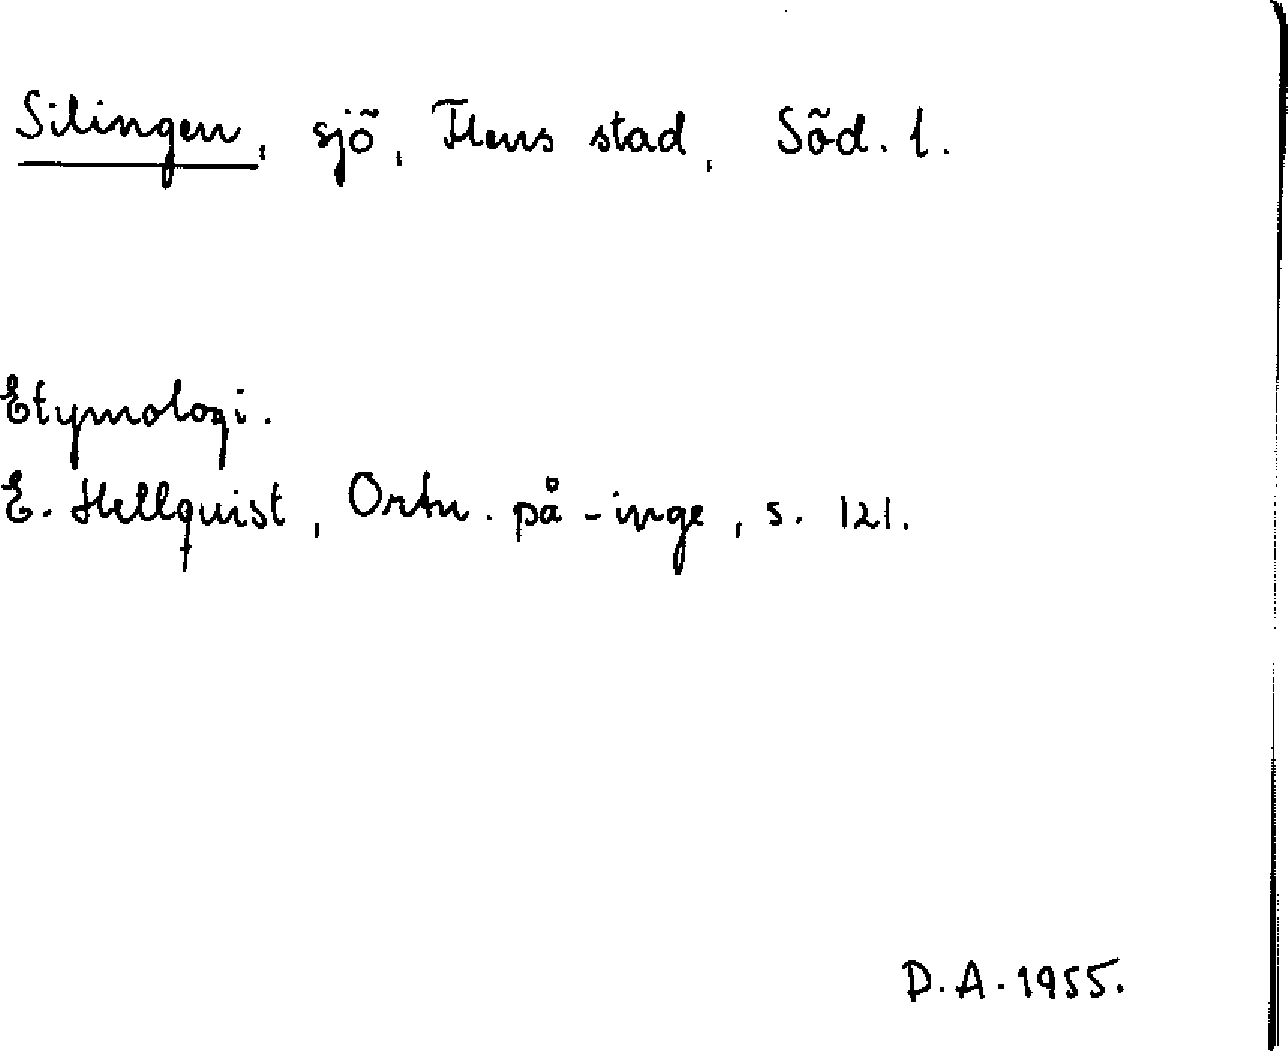 Silingen, sjö, Flens stad, Söd. l.
Etymologi.
E. Hellquist, Ortn. på -inge, s. 121.
D.A. 1955.